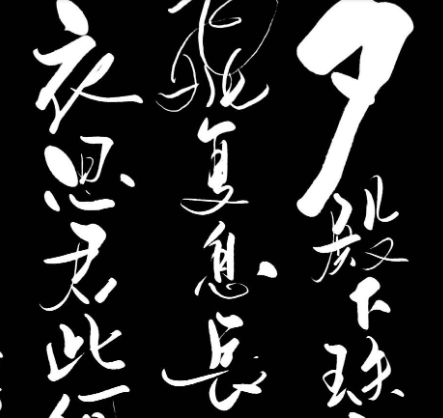 夕殿下珠
飛复息長
衣思君此